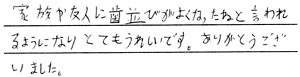 家族や友人に歯並びがよくなったねと言われ
るようになりとてもうれしいです。ありがとうござ
いました。